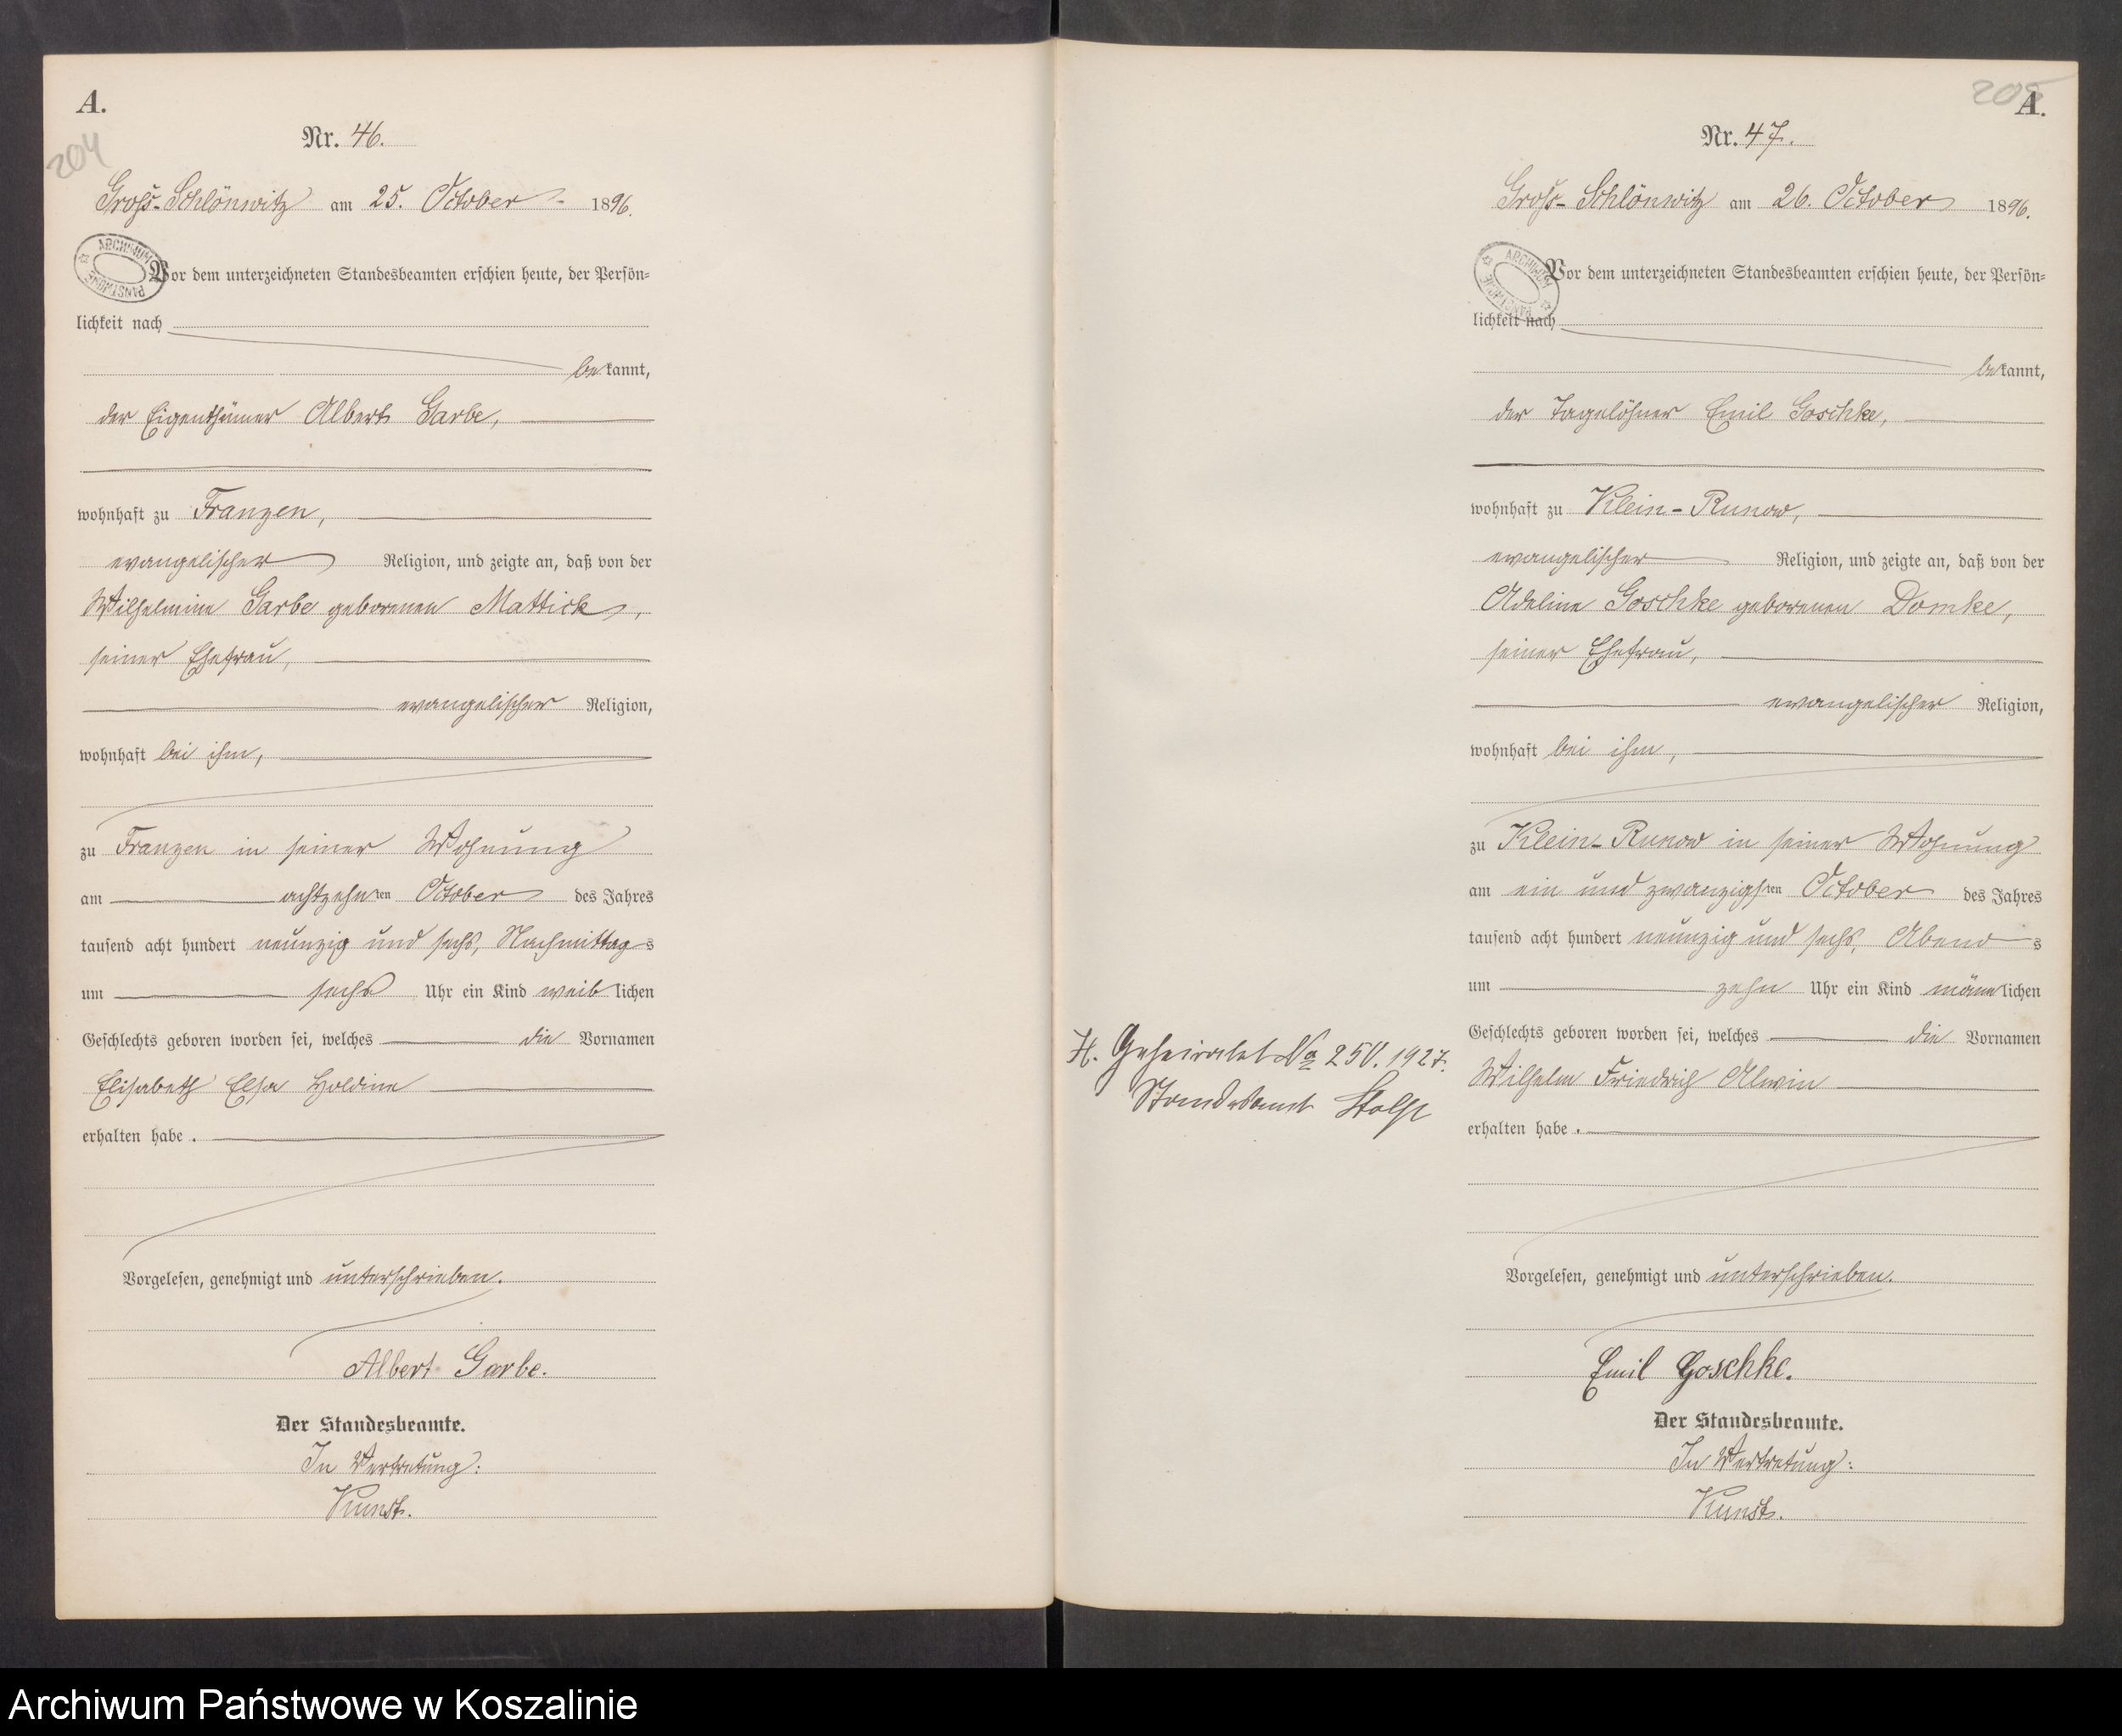 A.
204
Nr. 46.
Groß-Schlönwitz am 25. October 1896.
ARCHIWUM PAŃSTWOWE
Vor dem unterzeichneten Standesbeamten erschien heute, der Persön=
lichkeit nach
bekannt,
der Eigenthümer Albert Garbe,
wohnhaft zu Franzen,
evangelischer Religion, und zeigte an, daß von der
Wilhelmine Garbe geborenen Mattick,
seiner Ehefrau,
evangelischer Religion,
wohnhaft bei ihm,
zu Franzen in seiner Wohnung
am achtzehnten October des Jahres
tausend acht hundert neunzig und sechs, Nachmittags
um sechs Uhr ein Kind weiblichen
Geschlechts geboren worden sei, welches die Vornamen
Elisabeth Elsa Holdine
erhalten habe.
Vorgelesen, genehmigt und unterschrieben.
Albert Garbe.
Der Standesbeamte.
In Vertretung:
Kunst.
205
A.
Nr. 47.
Groß-Schlönwitz am 26. October 1896.
ARCHIWUM PAŃSTWOWE
Vor dem unterzeichneten Standesbeamten erschien heute, der Persön=
lichkeit nach
bekannt,
der Tagelöhner Emil Goschke,
wohnhaft zu Klein-Runow,
evangelischer Religion, und zeigte an, daß von der
Adeline Goschke geborenen Domke,
seiner Ehefrau,
evangelischer Religion,
wohnhaft bei ihm,
zu Klein-Runow in seiner Wohnung
am ein und zwanzigsten October des Jahres
tausend acht hundert neunzig und sechs, Abends
um zehn Uhr ein Kind männlichen
Geschlechts geboren worden sei, welches die Vornamen
Wilhelm Friedrich Alwin
erhalten habe.
H. Geheiratet No 250. 1927.
Standesamt Stolp
Vorgelesen, genehmigt und unterschrieben.
Emil Goschke.
Der Standesbeamte.
In Vertretung:
Kunst.
Archiwum Państwowe w Koszalinie